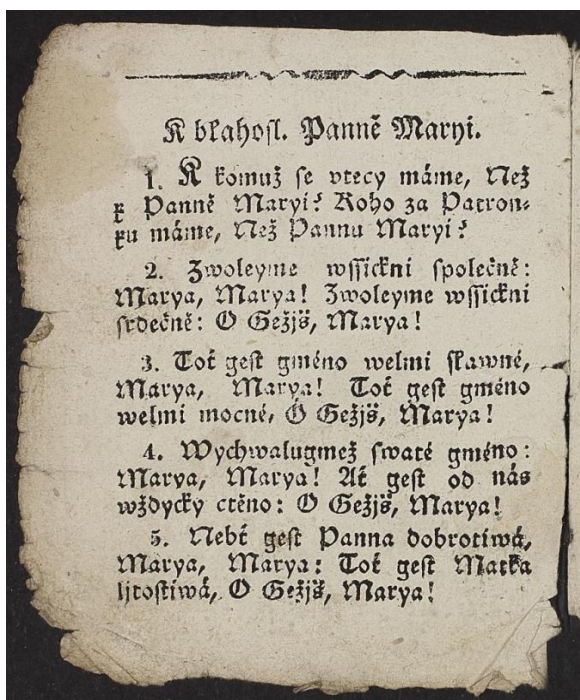 K blahosl. Panně Maryi.
1. K komuž se vtecy máme, Než
k Panně Maryi? Koho za Patron⸗
ku máme, Než Pannu Maryi?
2. Zwoleyme wssickni společně:
Marya, Marya! Zwoleyme wssickni
srdečně: O Gežjš, Marya!
3. Toť gest gméno welmi slawné,
Marya, Marya! Toť gest gméno
welmi mocné, O Gežjš, Marya!
4. Wychwalugmež swaté gméno:
Marya, Marya! Ať gest od nás
wždycky ctěno: O Gežjš, Marya!
5. Nebť gest Panna dobrotiwá,
Marya, Marya: Toť gest Matka
ljtostiwá, O Gežjš, Marya!